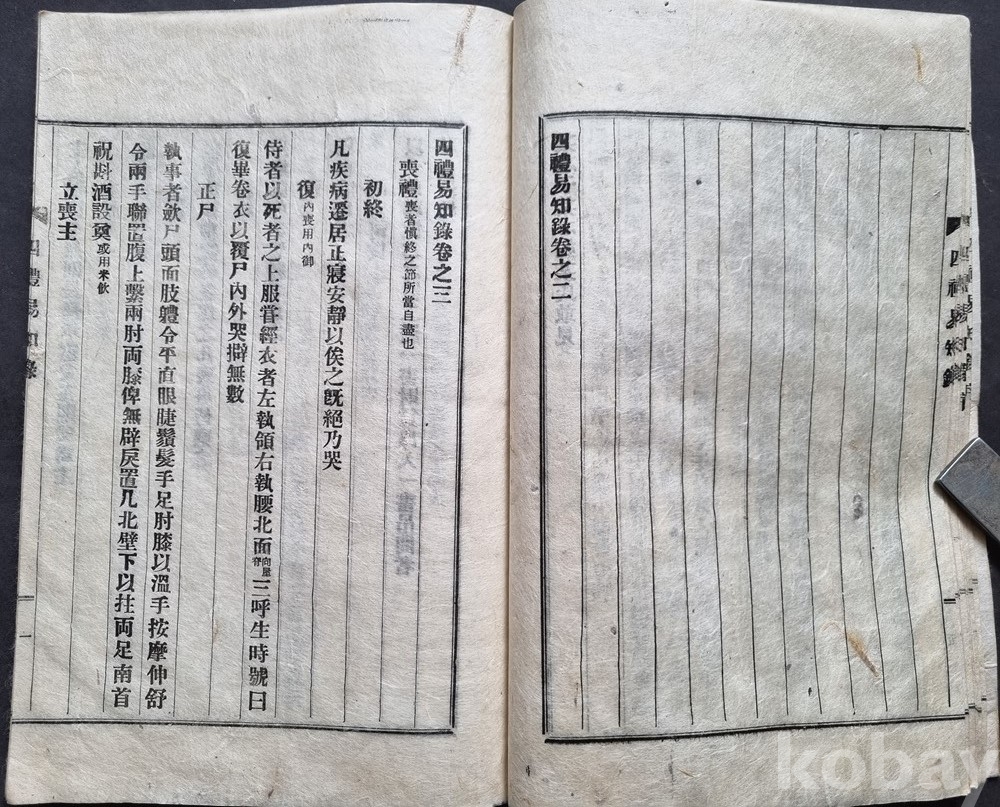 四禮易知錄卷之二
四禮易知錄
四禮易知錄卷之三
喪禮喪者愼終之節所當自盡也
初終
凡疾病遷居正寢安靜以俟之旣絕乃哭
復內喪用內御
侍者以死者之上服嘗經衣者左執領右執腰北面向屋脊三呼生時號曰
復畢卷衣以覆尸內外哭擗無數
正尸
執事者歛尸頭面肢軆令平直眼睫鬚髮手足肘膝以溫手按摩伸舒
令兩手聯置腹上繫兩肘両膝俾無辟戾置几北壁下以拄両足南首
祝斟酒設奠或用米飮
立喪主
四禮易知錄
一
kobay